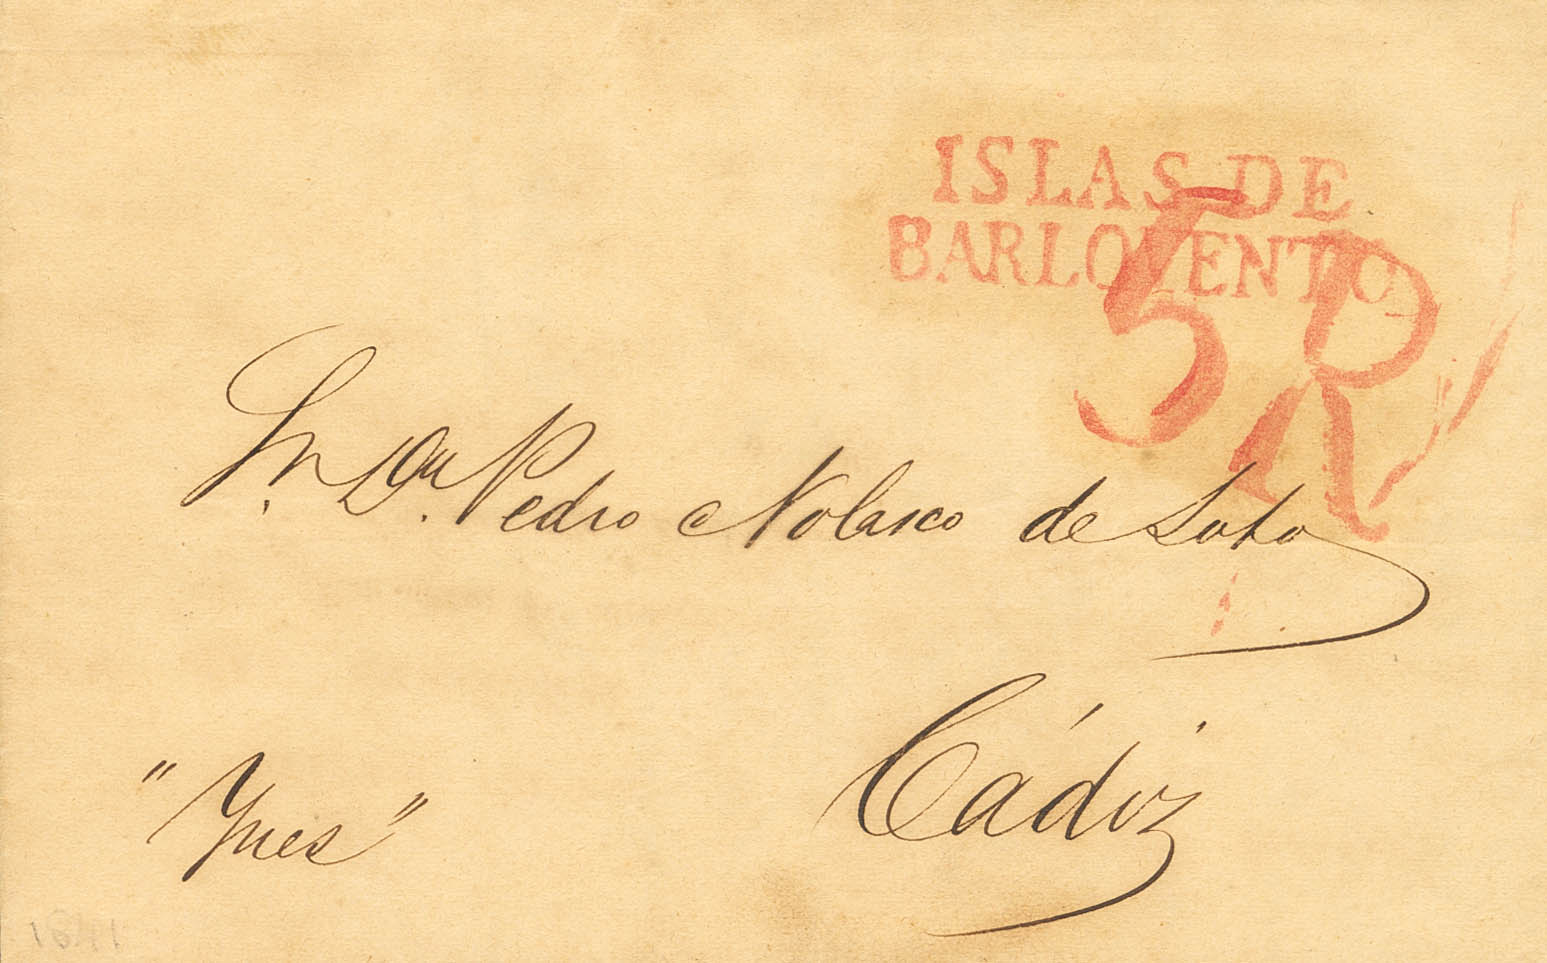 ISLAS DE
BARLOVENTO
5R
Sr. Dn. Pedro Nolasco de Soto
Cádiz
"Ynes"
1841